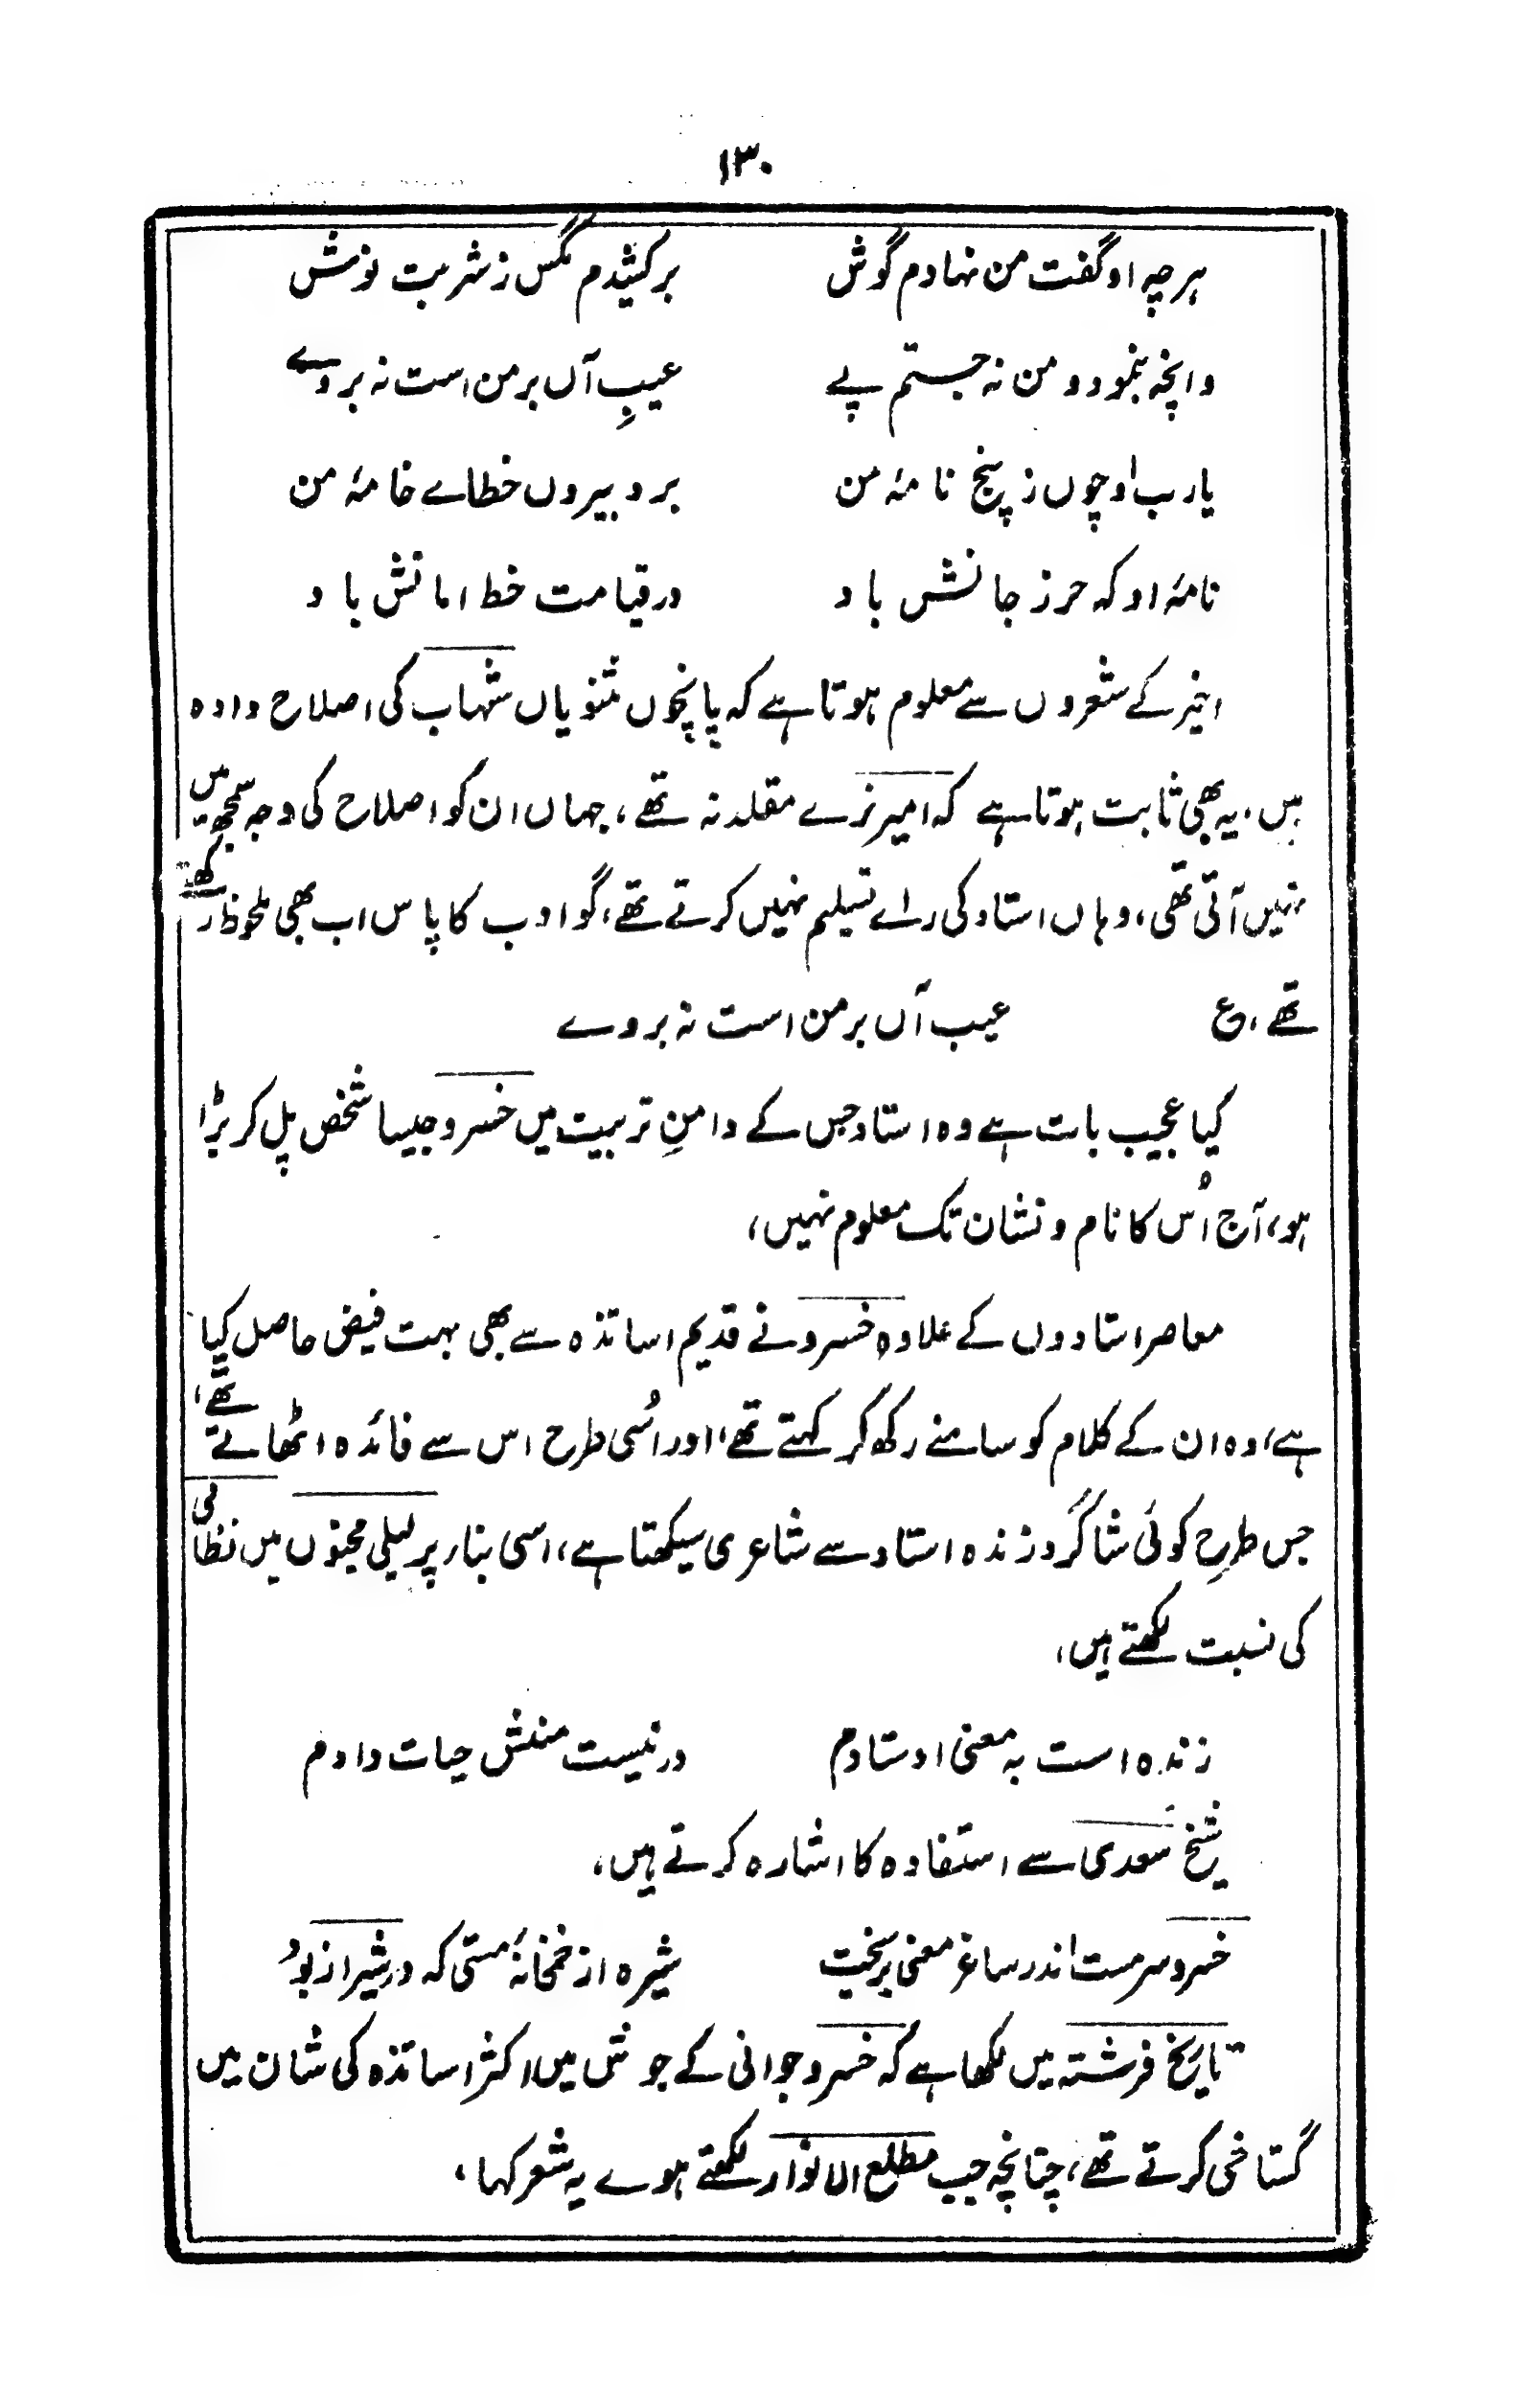 ۱۳۰
ہرچہ او گفت من نہادم گوش برکشیدم مگس ز شربت نوش
وانچہ بنمود و من نہ جستم پے عیبِ آں بر من است نہ بروے
یارب او چوں ز پنج نامۂ من برد بیروں خطاے خامۂ من
نامۂ او کہ حرز جانش باد در قیامت خط امانش باد
اخیر کے شعروں سے معلوم ہوتا ہے کہ پانچوں مثنویاں شہاب کی اصلاح دادہ
ہیں، یہ بھی ثابت ہوتا ہے کہ امیر نرے مقلد نہ تھے، جہاں ان کو اصلاح کی وجہ سمجھ میں
نہیں آتی تھی، وہاں استاد کی راے تسلیم نہیں کرتے تھے، گو ادب کا پاس اب بھی ملحوظ رکھتے
تھے، ع عیب آں بر من است نہ بروے
کیا عجیب بات ہے وہ استاد جس کے دامنِ تربیت میں خسرو جیسا شخص پل کر بڑا
ہو، آج اُس کا نام و نشان تک معلوم نہیں،
معاصر استادوں کے علاوہ خسرو نے قدیم اساتذہ سے بھی بہت فیض حاصل کیا
ہے، وہ ان کے کلام کو سامنے رکھ کر کہتے تھے، اور اُسی طرح اس سے فائدہ اٹھاتے تھے،
جس طرح کوئی شاگرد زندہ استاد سے شاعری سیکھتا ہے، اسی بناء پر لیلی مجنوں میں نظامی
کی نسبت لکھتے ہیں،
زندہ است بہ معنی اوستادم ور نیست منش حیات دادم
شیخ سعدی سے استفادہ کا اشارہ کرتے ہیں،
خسرو سرمست اندر ساغر معنی بریخت شیرہ از خمخانۂ مستی کہ در شیراز بود
تاریخ فرشتہ میں لکھا ہے کہ خسرو جوانی کے جوش میں اکثر اساتذہ کی شان میں
گستاخی کرتے تھے، چنانچہ جب مطلع الانوار لکھتے ہوے یہ شعر کہا،